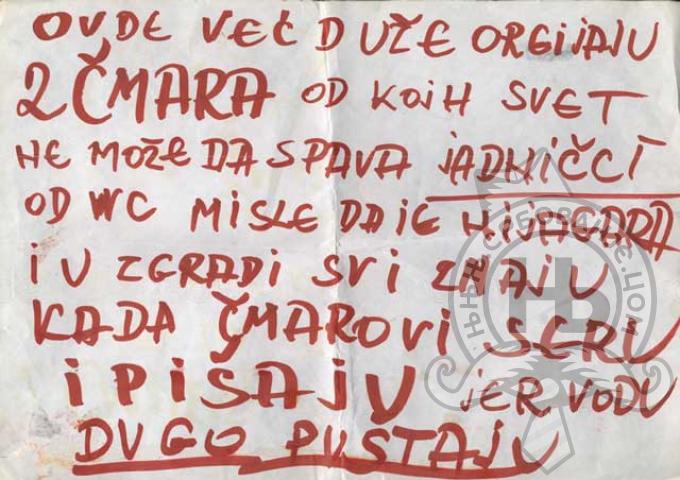 OVDE VEĆ DUŽE ORGIJAJU
2 ČMARA OD KOJIH SVET
NE MOŽE DA SPAVA JADNIČCI
OD WC MISLE DA JE NIJAGARA
I U ZGRADI SVI ZNAJU
KADA ČMAROVI SERU
I PIŠAJU JER VODU
DUGO PUŠTAJU